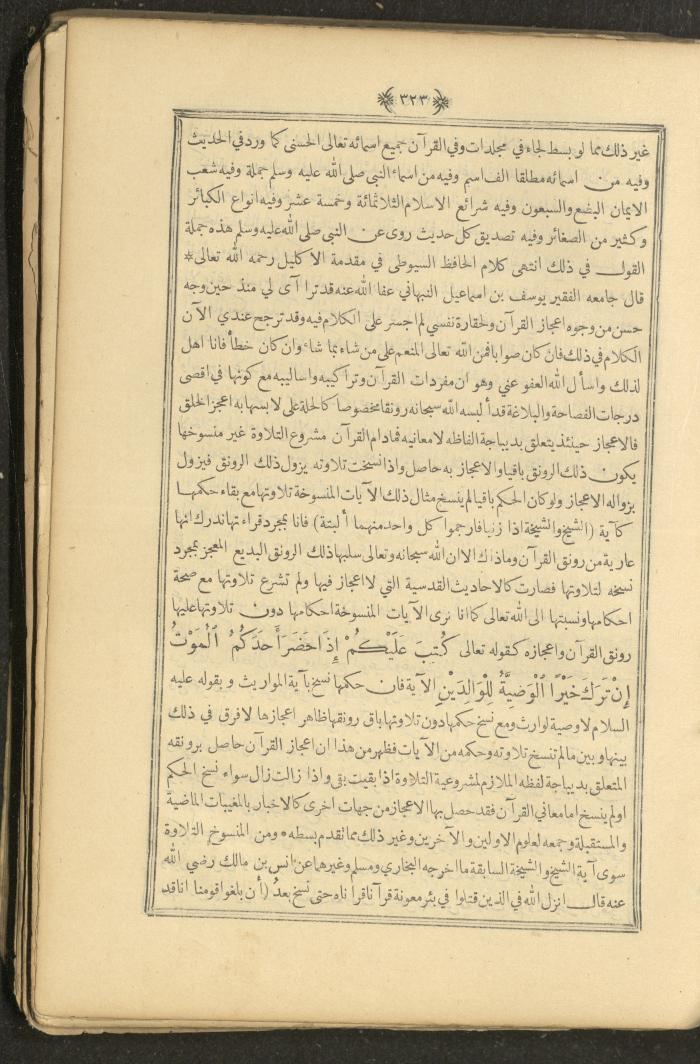 ٣٢٣
غير ذلك مما لو بسط لجاء في مجلدات وفي القرآن جميع اسمائه تعالى الحسنى كما ورد في الحديث
وفيه من اسمائه مطلقا الف اسم وفيه من اسماء النبي صلى الله عليه وسلم جملة وفيه شعب
الايمان البضع والسبعون وفيه شرائع الاسلام الثلاثمائة وخمسة عشر وفيه انواع الكبائر
وكثير من الصغائر وفيه تصديق كل حديث روى عن النبي صلى الله عليه وسلم هذه جملة
القول في ذلك انتهى كلام الحافظ السيوطى في مقدمة الاكليل رحمه الله تعالى *
قال جامعه الفقير يوسف بن اسماعيل النبهاني عفا الله عنه قد ترا آى لي منذ حين وجه
حسن من وجوه اعجاز القرآن ولحقارة نفسي لم اجسر على الكلام فيه وقد ترجح عندي الآن
الكلام في ذلك فان كان صوابا فمن الله تعالى المنعم على من شاء بما شاء وان كان خطأ فانا اهل
لذلك واسأل الله العفو عني وهو ان مفردات القرآن وتراكيبه واساليبه مع كونها في اقصى
درجات الفصاحة والبلاغة قد ألبسه الله سبحانه رونقا مخصوصا كالحلة على لابسها به اعجز الخلق
فالاعجاز حينئذ يتعلق بديباجة الفاظه لا معانيه فمادام القرآن مشروع التلاوة غير منسوخها
يكون ذلك الرونق باقيا والاعجاز به حاصل واذا نسخت تلاوته يزول ذلك الرونق فيزول
بزواله الاعجاز ولو كان الحكم باقيا لم ينسخ مثال ذلك الآيات المنسوخة تلاوتها مع بقاء حكمها
كآية (الشيخ والشيخة اذا زنيا فارجموا كل واحد منهما ألبتة) فانا بمجرد قراءتها ندرك انها
عارية من رونق القرآن وما ذاك الا ان الله سبحانه وتعالى سلبها ذلك الرونق البديع المعجز بمجرد
نسخه لتلاوتها فصارت كالاحاديث القدسية التي لا اعجاز فيها ولم تشرع تلاوتها مع صحة
احكامها ونسبتها الى الله تعالى كما انا نرى الآيات المنسوخة احكامها دون تلاوتها عليها
رونق القرآن واعجازه كقوله تعالى كُتِبَ عَلَيْكُمْ إِذَا حَضَرَ أَحَدَكُمُ ٱلْمَوْتُ
إِنْ تَرَكَ خَيْرًا ٱلْوَصِيَّةُ لِلْوَالِدَيْنِ الآية فان حكمها نسخ بآية المواريث وبقوله عليه
السلام لا وصية لوارث ومع نسخ حكمها دون تلاوتها باق رونقها ظاهر اعجازها لا فرق في ذلك
بينها وبين ما لم تنسخ تلاوته وحكمه من الآيات فظهر من هذا ان اعجاز القرآن حاصل برونقه
المتعلق بديباجة لفظه الملازم لمشروعية التلاوة اذا بقيت بقى واذا زالت زال سواء نسخ الحكم
او لم ينسخ اما معاني القرآن فقد حصل بها الاعجاز من جهات اخرى كالاخبار بالمغيبات الماضية
والمستقبلة وجمعه لعلوم الاولين والآخرين وغير ذلك مما تقدم بسطه • ومن المنسوخ التلاوة
سوى آية الشيخ والشيخة السابقة ما اخرجه البخاري ومسلم وغيرهما عن انس بن مالك رضي الله
عنه قال انزل الله في الذين قتلوا في بئر معونة قرآنا قرأناه حتى نسخ بعدُ (أن بلغوا قومنا انا قد